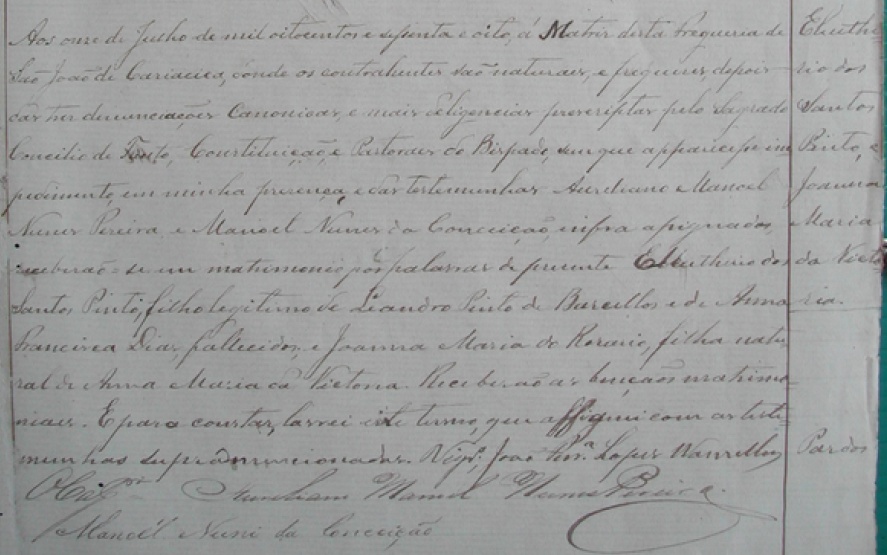 Aos onze de Julho de mil oitocentos e setenta e oito, á Matriz desta Freguezia de
São João de Cariacica, donde os contrahentes são naturaes, e freguezes, depois
das tres denunciações Canonicas, e mais deligencias prescriptas pelo Sagrado
Concilio de Constituição, e Pastoraes do Bispado, sem que apparecesse im=
pedimento, em minha presença, e das testemunhas Aureliano Manoel
Nunes Pereira e Manoel Nunes da Conceição, infra assignados,
receberão=se em matrimonio por palavras de presente Eleutherio dos
Santos Pinto, filho legitimo de Leandro Pinto de Barcellos e de Anna
Francisca Dias, fallecidos, e Joanna Maria do Rosario, filha natu=
ral de Anna Maria da Victoria. Receberão as bençaõs matrimo=
niaes. E para constar, lavrei este termo, que affignei com as teste=
munhas supra mencionadas. João Lopes
Aureliano Manoel Nunes Pereira.
Manoel Nuni da Conceição
Eleuthe
rio dos
Santos
Pinto, e
Joanna
Maria
da Victo
ria.
Pardos